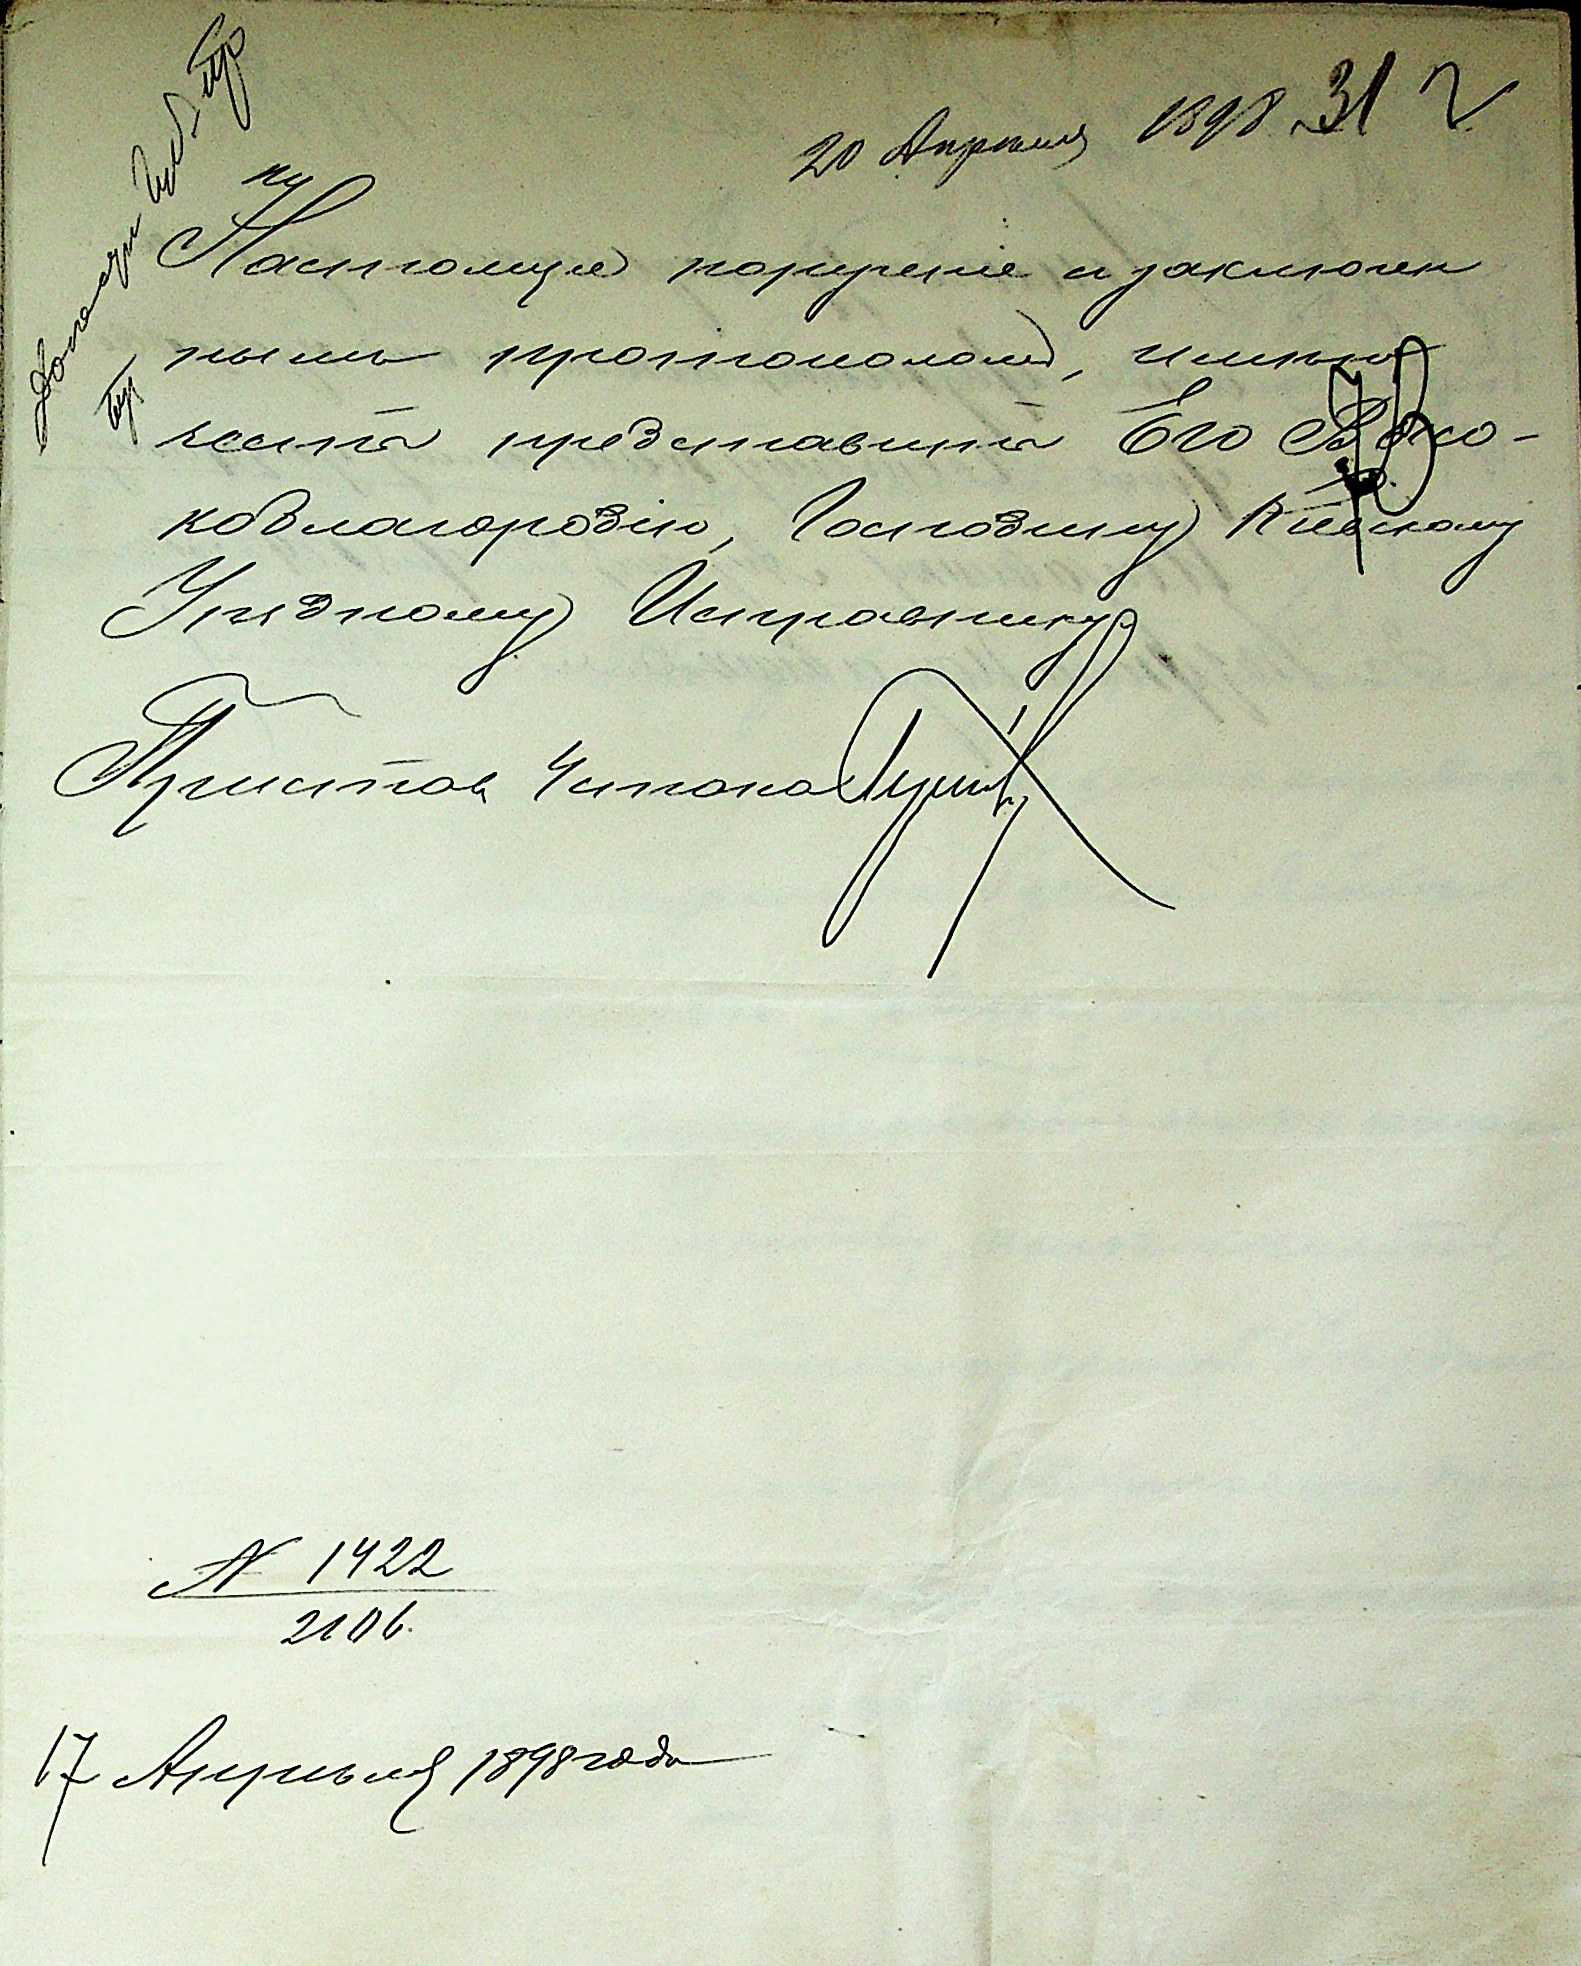 20 Апрѣля 1898 31
Настоящее порученіе и заключен
нымъ протоколомъ, имѣю
честь представить Его Высо-
коблагородію, Господину Кіевскому
Уѣздному Исправнику.
Приставъ 4 стана
№ 1422
2106.
17 Апрѣля 1898 года